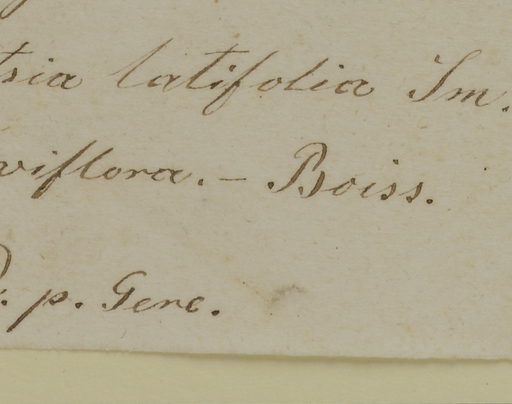 tsia latifolia Sm.
viflora. — Boiss.
. p. Gene.